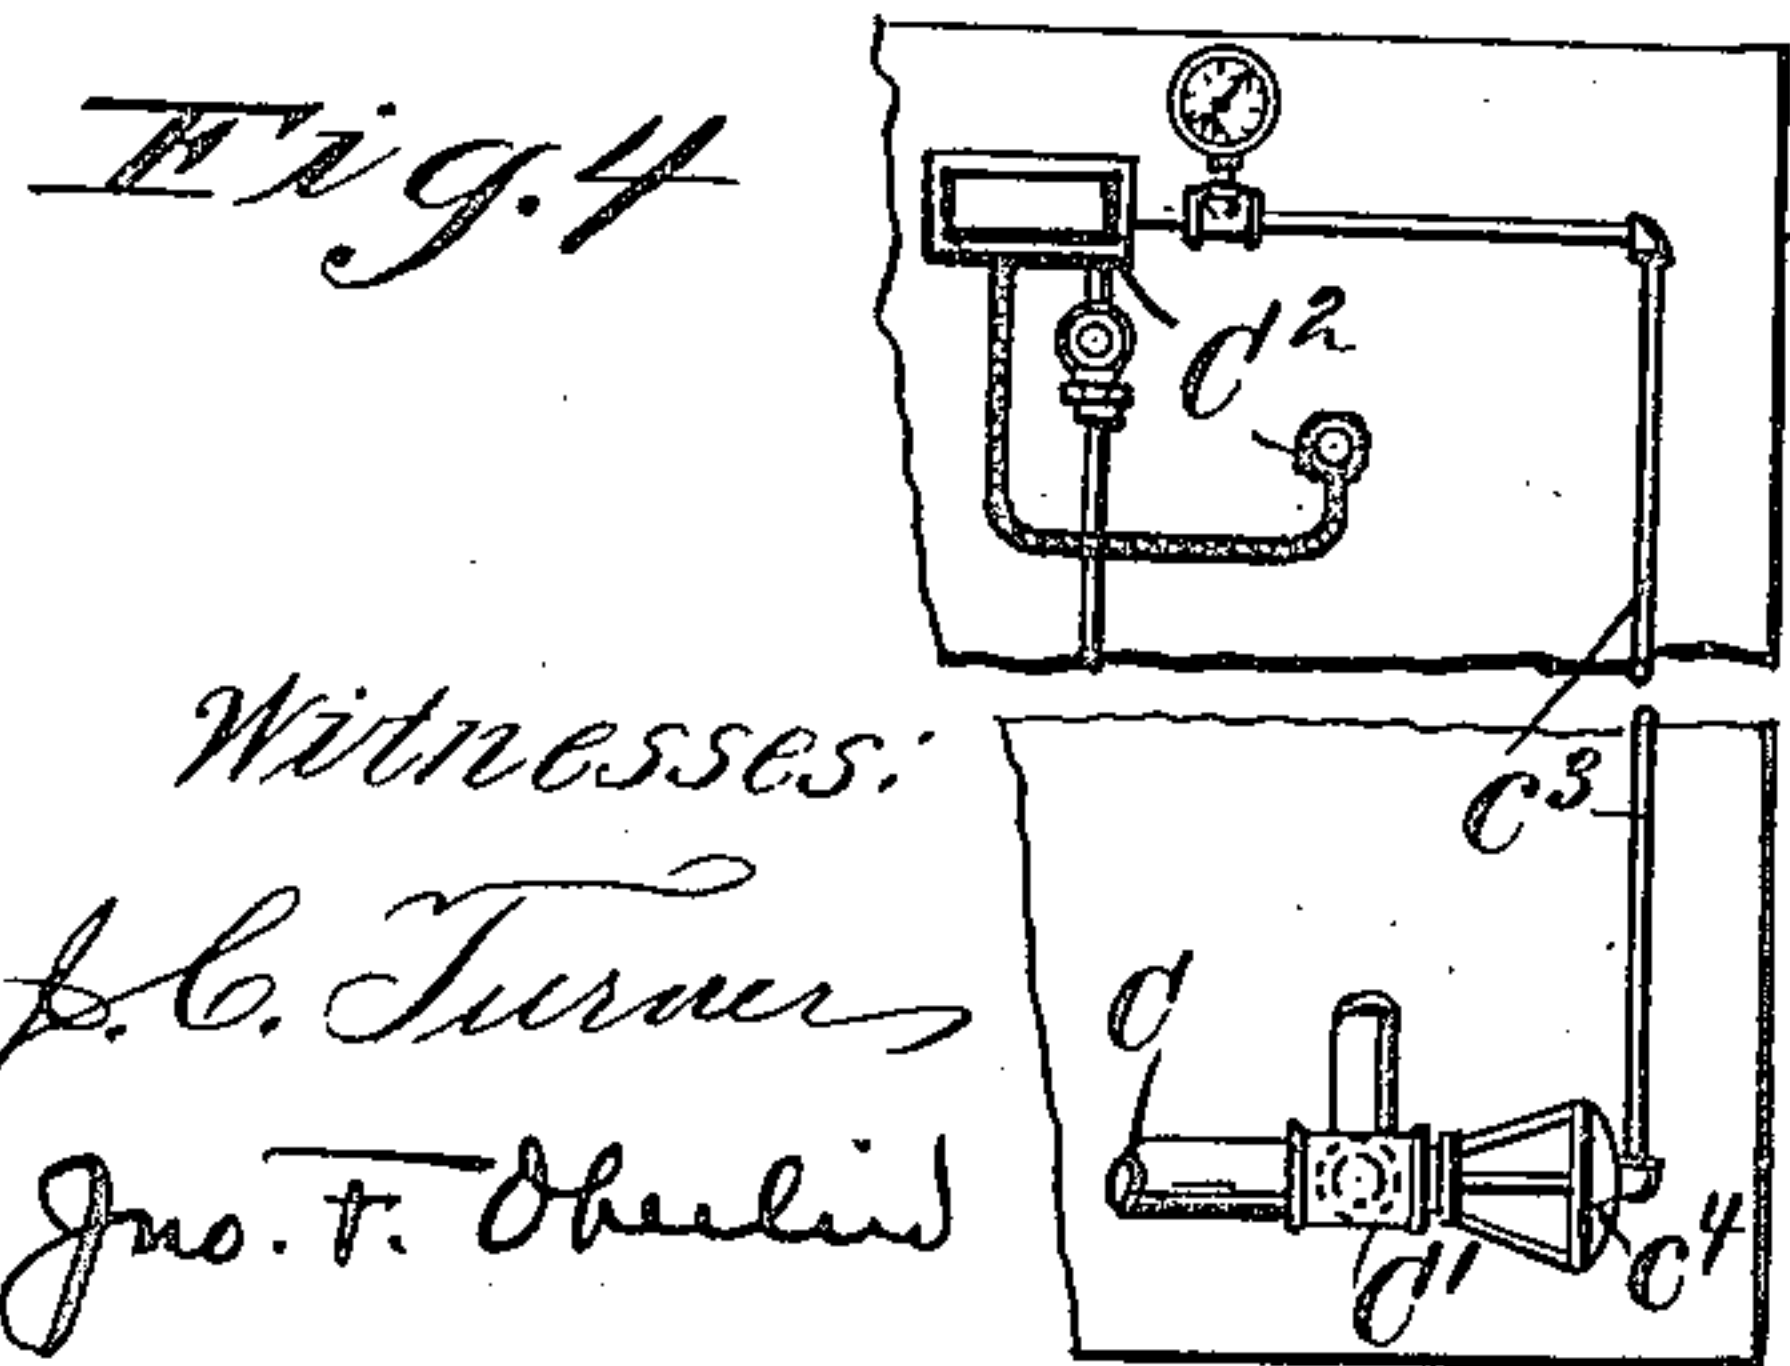 Fig. 4
C²
C³
Witnesses:
C
J. C. Turner
Jno. F. Oberlin
C'
C⁴